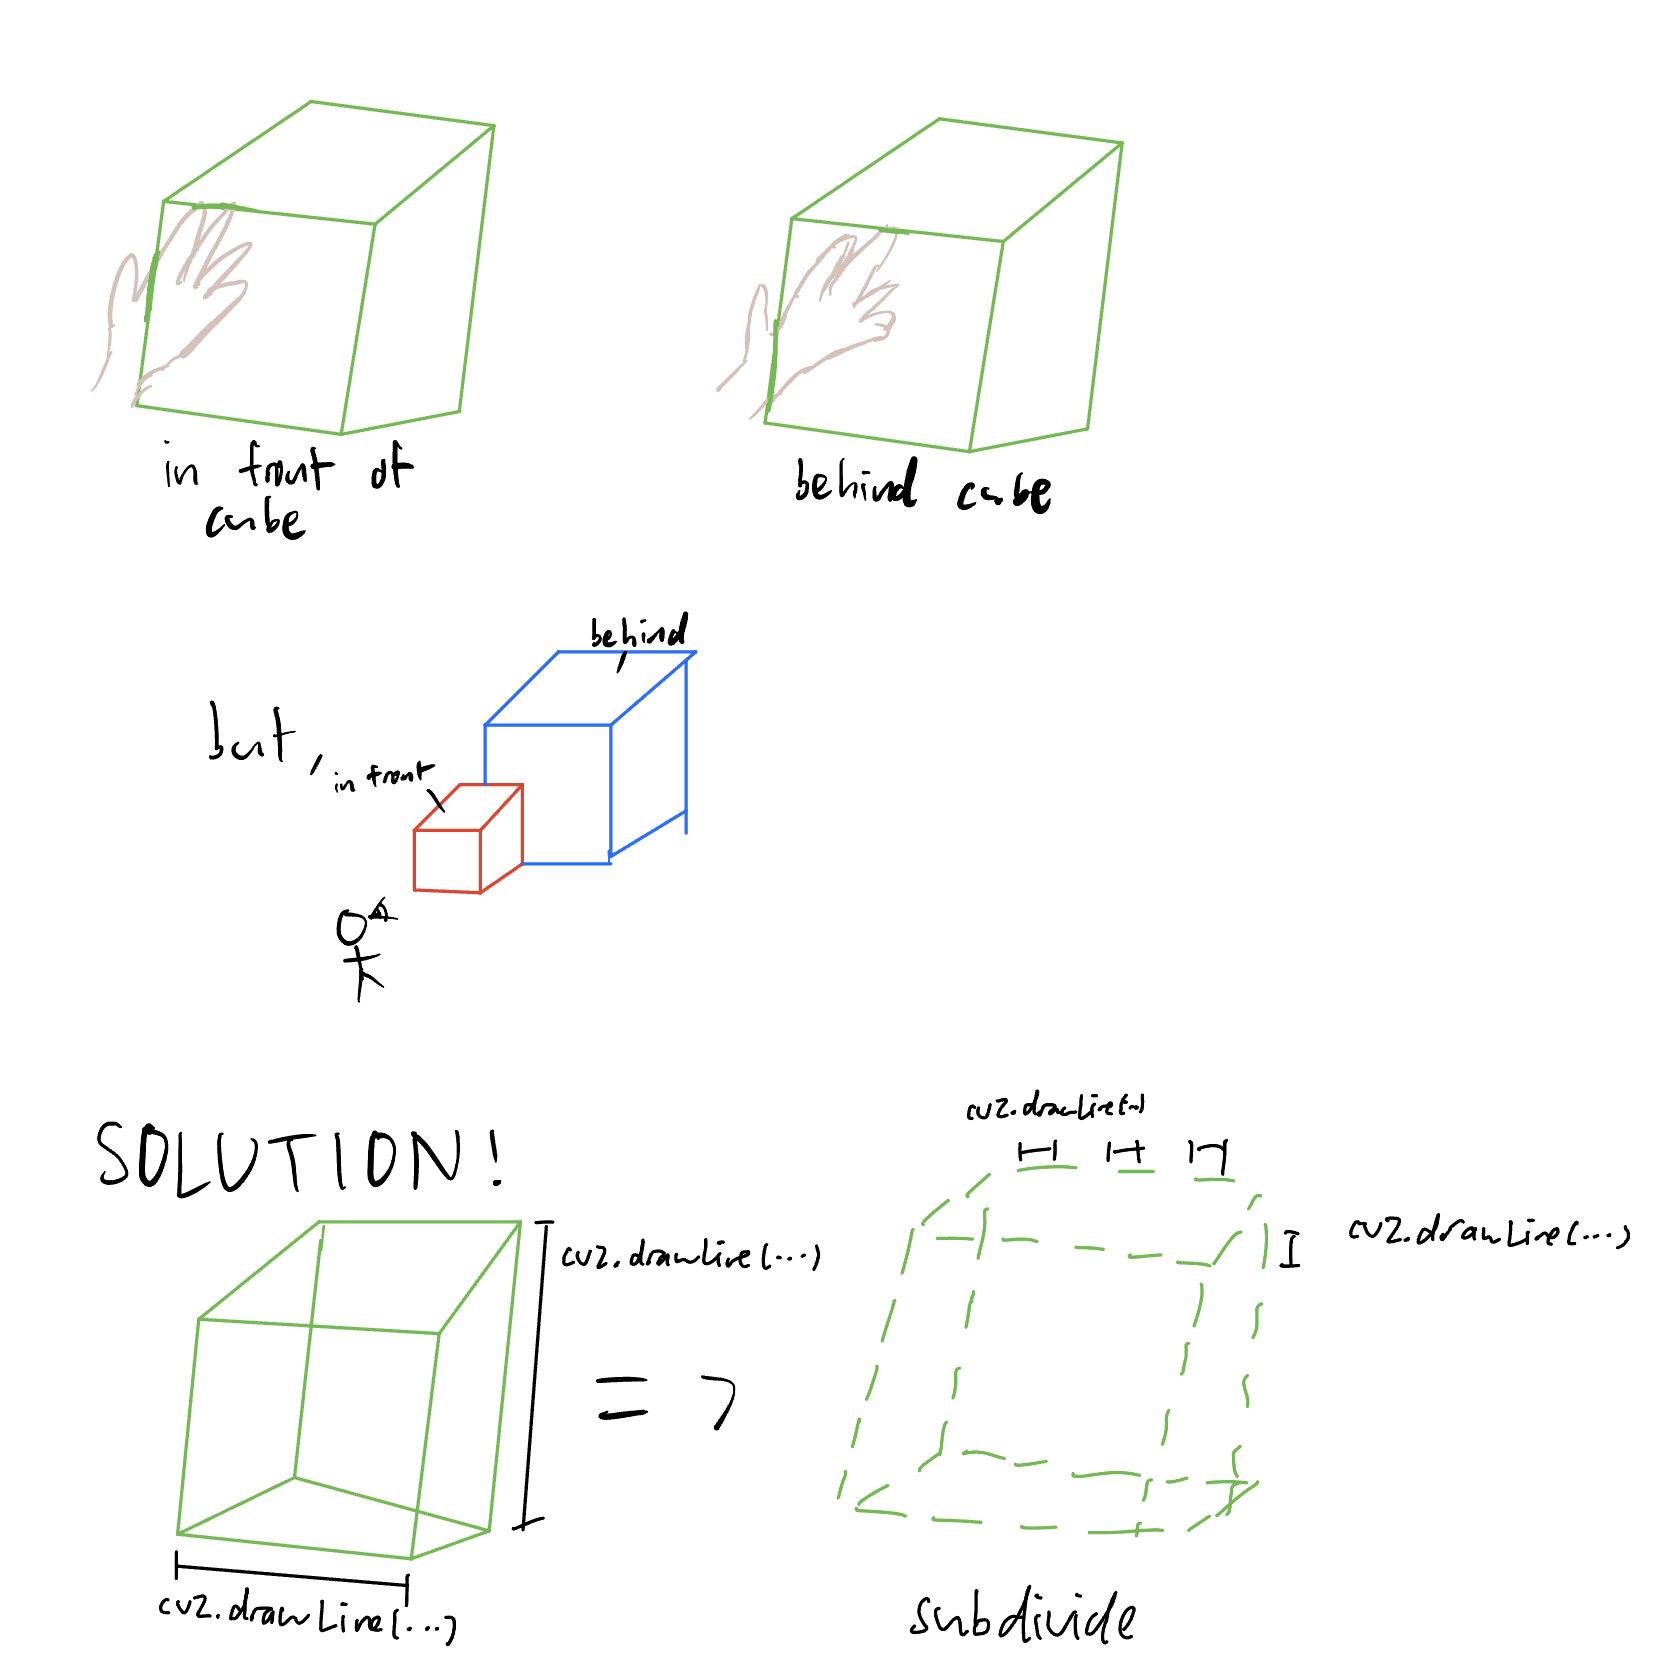 in front of
cube
behind cube
behind
but,
in front
SOLUTION!
cv2.drawLine(...)
cv2.drawLine(...)
cv2.drawLine(...)
=>
cv2.drawLine(...)
subdivide